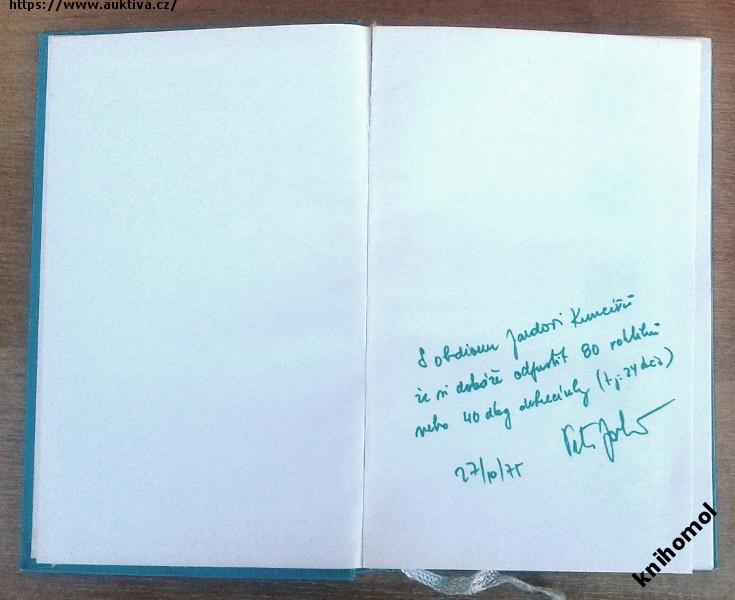 https://www.auktiva.cz/
S obdivem Jardovi
že si dokáže odpustit 80 rohlíků
nebo 40 dkg debrecínky (tj. 24 Kčs)
27/10/75
knihomol